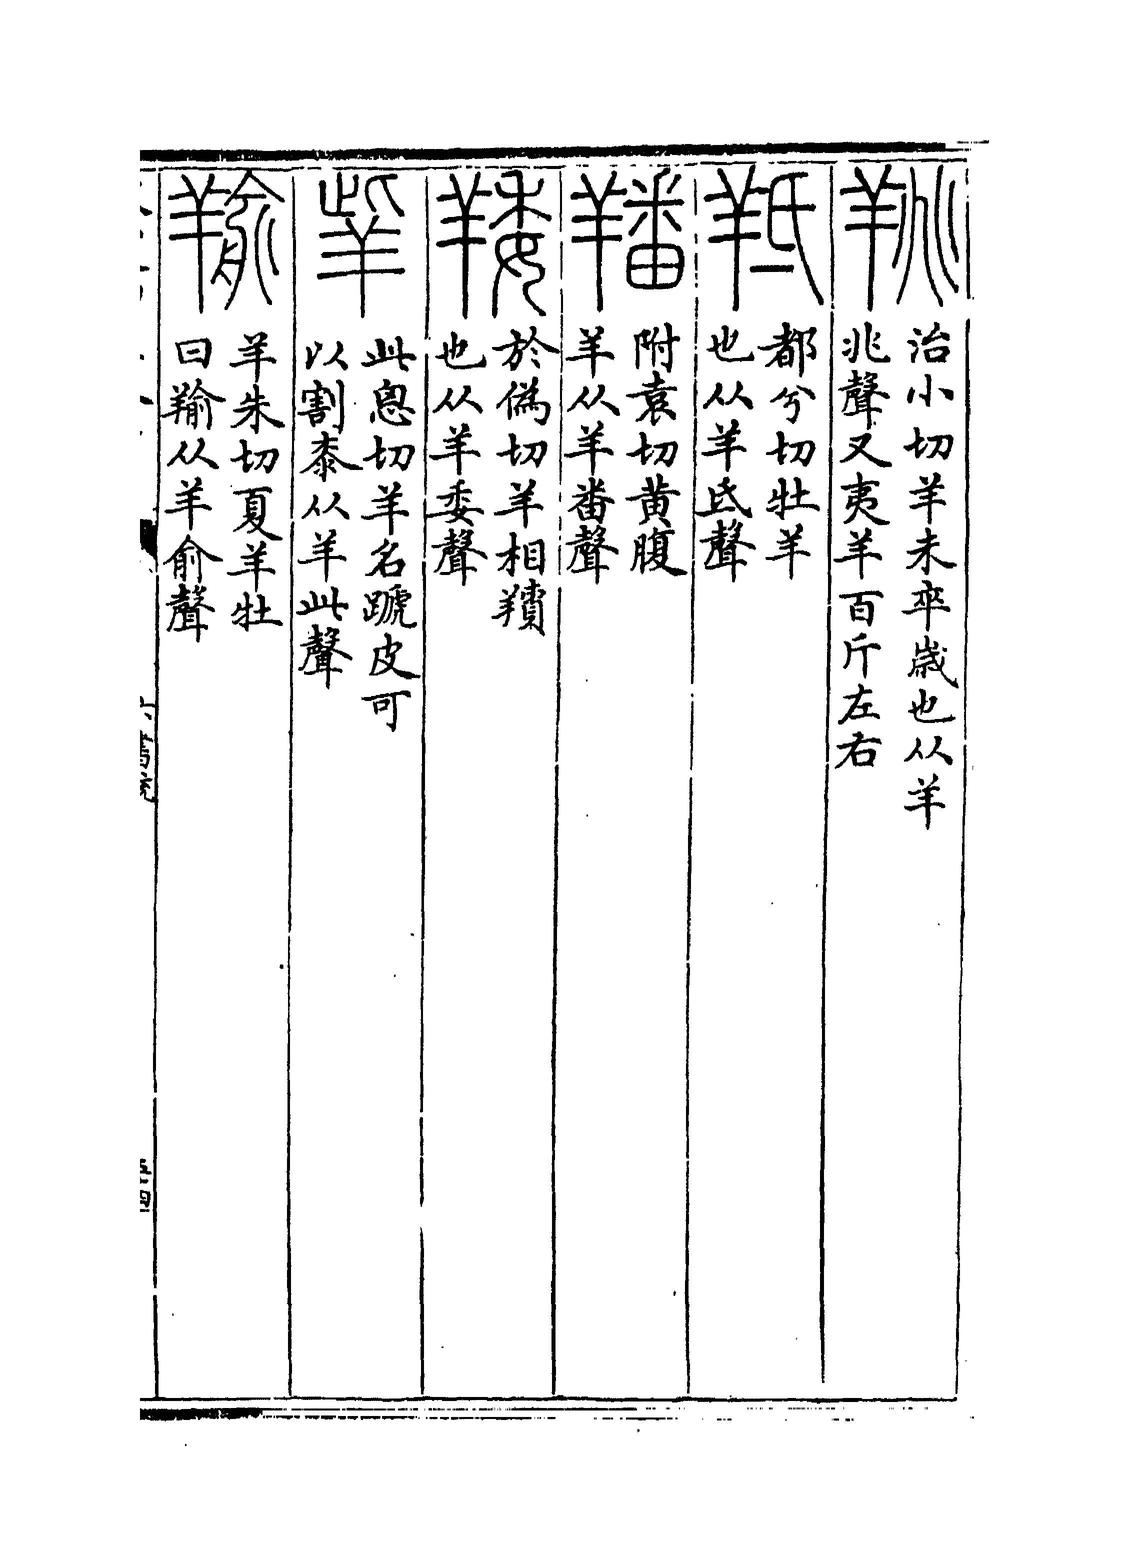 羜
治小切羊未卒歳也从羊
兆聲又夷羊百斤左右
羝
都兮切牡羊
也从羊氐聲
羳
附袁切黄腹
羊从羊番聲
羻
於偽切羊相羵
也从羊委聲
羛
此思切羊名蹏皮可
以割桼从羊此聲
羭
羊朱切夏羊牡
曰羭从羊俞聲
六書統